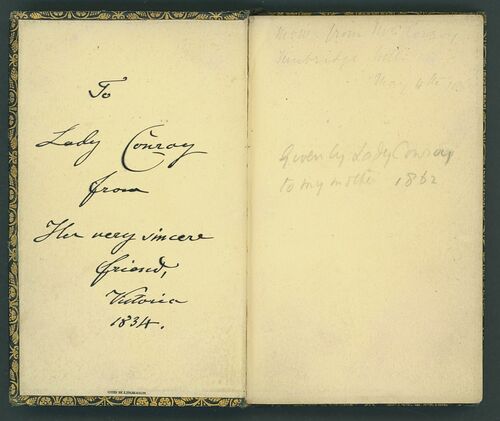 To
Lady Conroy
from
Her very sincere
friend,
Victoria
1834.
from
Tunbridge
May
Given by Lady Conroy
to my mother 1862